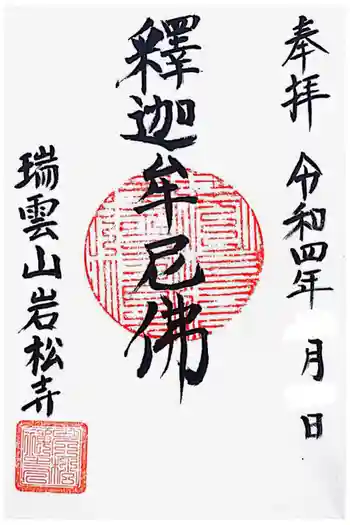 奉拝
令和四年 月 日
釋迦牟尼佛
瑞雲山岩松寺